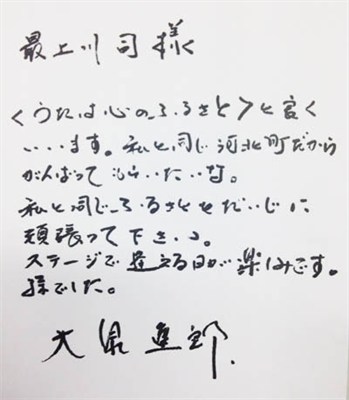 最上川司様
<うたは心のふるさと>と良く
います。私と同じ河北町だから
がんばってもらいたいな。
私と同じふるさとをだいじに
頑張って下さい。
ステージで逢える日が楽しみです。
様でした。
大泉逸郎.